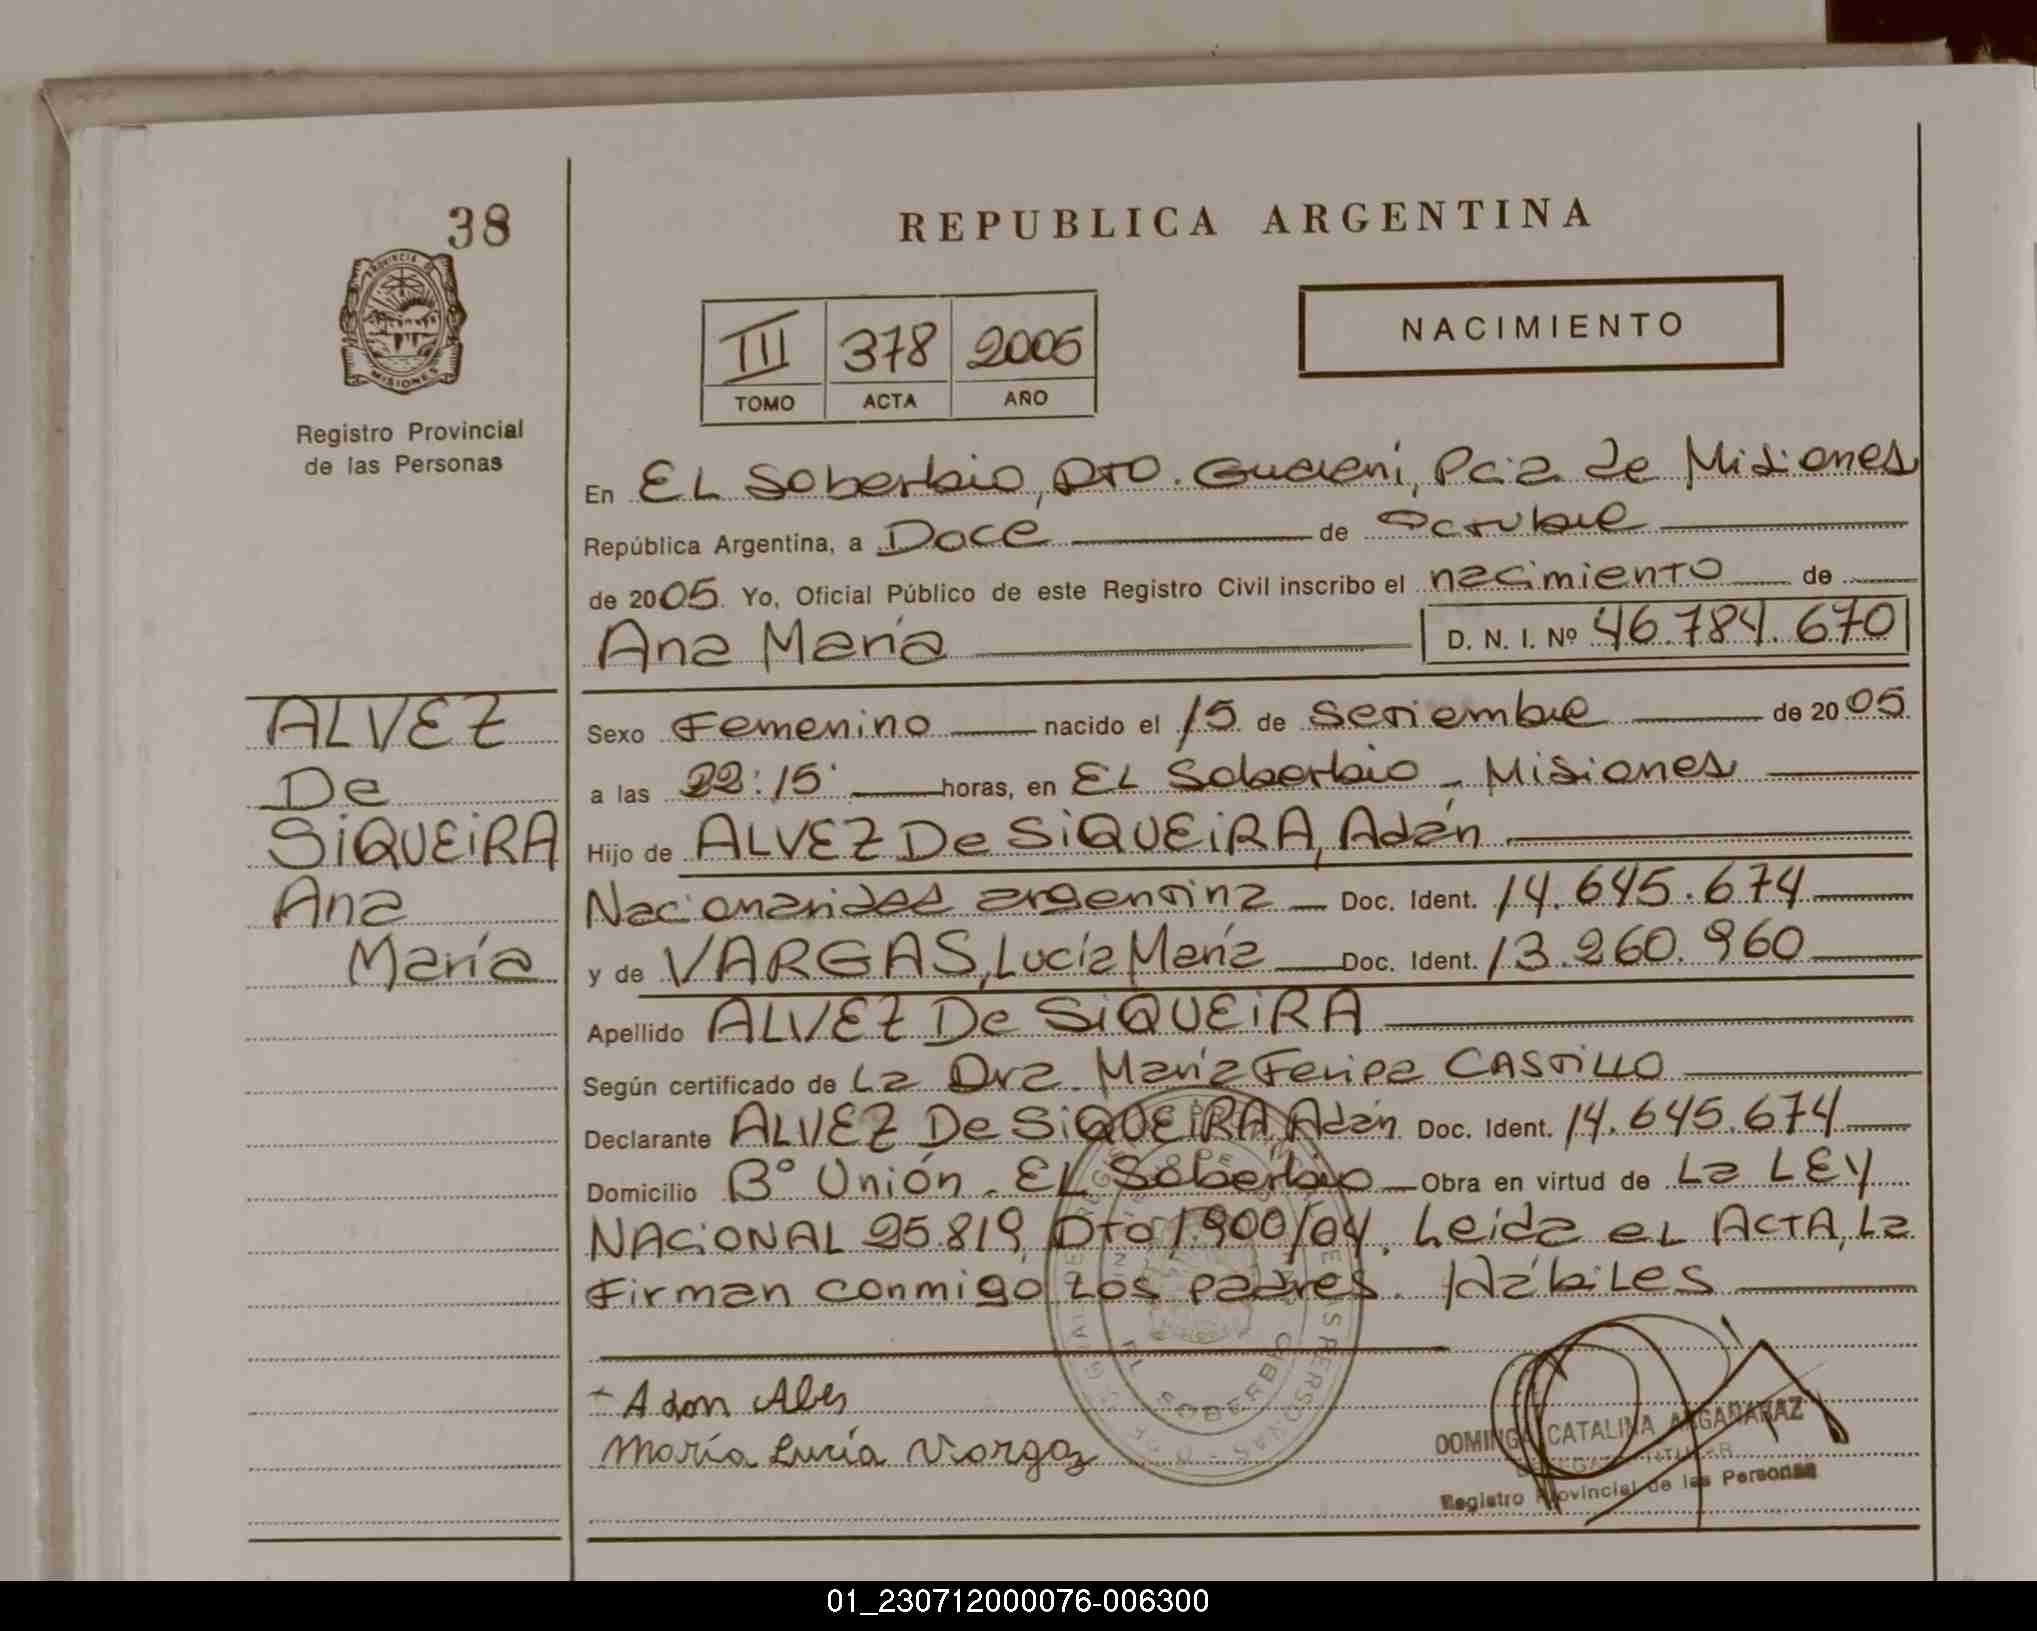 38
REPUBLICA ARGENTINA
PROVINCIA DE
MISIONES
Registro Provincial
de las Personas
III 378 2005
TOMO ACTA AÑO
NACIMIENTO
En EL Soberbio, Dto. Guaraní, Pcia de Misiones
República Argentina, a Doce de Octubre
de 2005. Yo, Oficial Público de este Registro Civil inscribo el nacimiento de
Ana María D. N. I. Nº 46.784.670
ALVEZ
De
SiQUEiRA
Ana
María
Sexo Femenino nacido el 15 de Setiembre de 2005
a las 22:15 horas, en EL Soberbio - Misiones
Hijo de ALVEZ De SiQUEiRA, Adán
Nacionalidad argentina Doc. Ident. 14.645.674
y de VARGAS, Lucía María Doc. Ident. 13.260.960
Apellido ALVEZ De SiQUEiRA
Según certificado de La Dra María Felipa CASTILLO
Declarante ALVEZ De SiQUEiRA, Adán Doc. Ident. 14.645.674
Domicilio Bº Unión - EL Soberbio Obra en virtud de La LEY
NACiONAL 25.819, Dto 1.900/04. Leida eL ACTA, La
Firman conmigo Los padres. HábiLes
EL SOBERBIO
Adan Alves
María Lucía Vargaz
DOMINGA CATALINA ARGAÑARAZ
Registro Provincial de las Personas
01_230712000076-006300